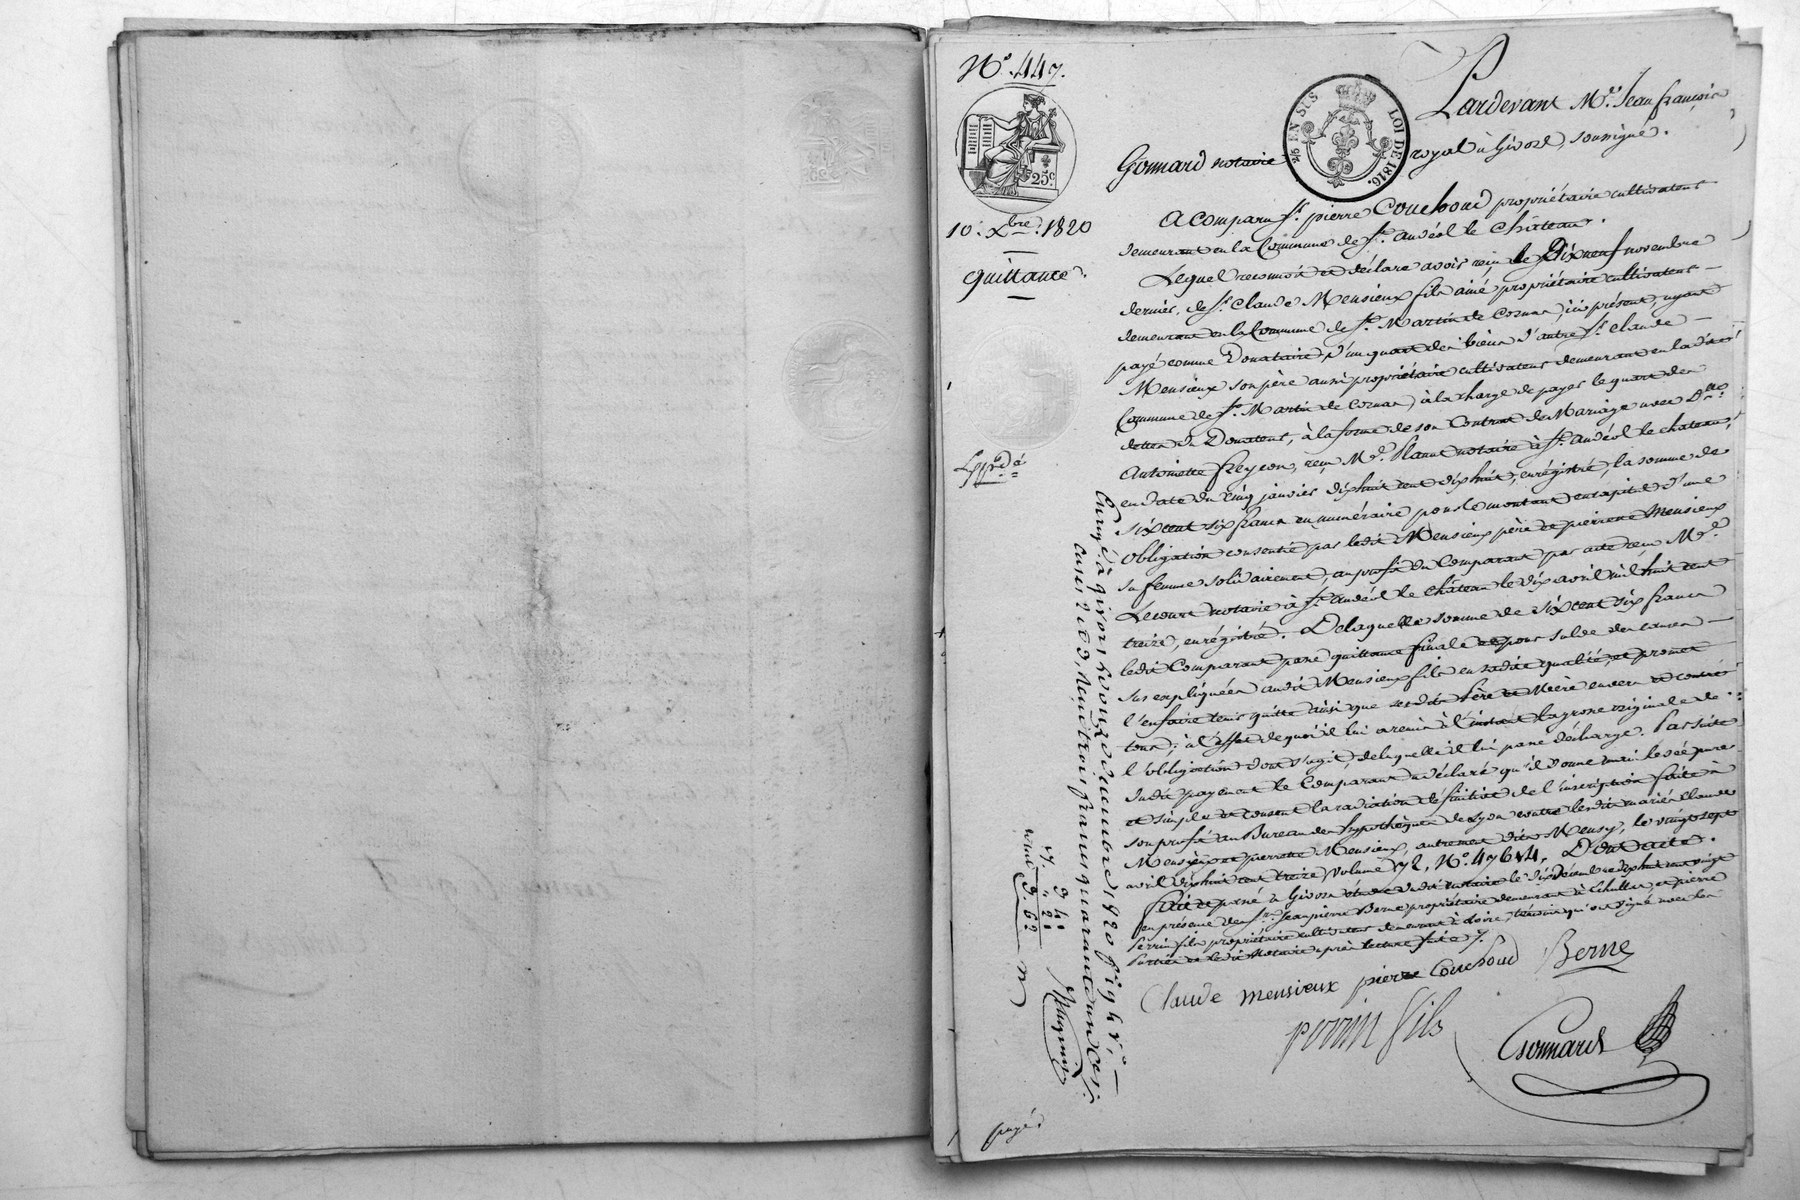 N° 447.
25c
10. Xbre. 1820
quittance.
2/5 EN SUS
LOI DE 1816.
Pardevant Me. Jean françois
Gonnard notaire royal à Givors, soussigné.
A Comparu Sr. pierre Couchoud propriétaire cultivateur
demeurant en la Commune de St. Andéol le Château.
Lequel reconnoit et déclare avoir reçu le Dix neuf novembre
dernier, de Sr. Claude Mensieux fils ainé propriétaire cultivateur
demeurant en la Commune de St. Martin de Cornas, ici présent, ayant
payé comme Donataire d'un quart des biens d'autre Sr. Claude
Mensieux son père aussi propriétaire cultivateur demeurant en la dite
Commune de St. Martin de Cornas, à la charge de payer le quart des
dettes du Donateur, à la forme de son Contrat de Mariage avec Dlle.
Antoinette freycon, reçu Me. Plann notaire à St. Andéol le chateau,
en date du cinq janvier dix huit cent dix huit, enrégistré, la somme de
six cent six francs en numéraire pour le montant en capital d'une
obligation consentie par ledit Mensieux père et pierrette Mensieux
sa femme solidairement, au profit du Comparant par acte reçu Me.
Lecourt notaire à St. Andéol le château le dix avril mil huit cent
treize, enrégistré. De laquelle somme de six cent six francs
ledit Comparant passe quittance finale et pour solde des causes
sus expliquées audit Mensieux fils en sadite qualité, et promet
l'en faire tenir quitte ainsi que sesdits Père et Mère envers et contre
tous; à l'effet de quoi il lui a remis à l'instant la grosse originale de
l'obligation dont s'agit, de laquelle il lui passe décharge. Par suite
dudit payement le Comparant a déclaré qu'il donne main levée pure
et simple et consent la radiation définitive de l'inscription faite à
son profit au Bureau des hypothèques de Lyon contre lesdits mariés Claude
Mensieux et pierrette Mensieux, autrement dits Mensy, le vingt sept
avril dix huit cent treize, volume 172, N°. 476 &4. Dont acte.
fait et passé à Givors étude dudit notaire le dix Décembre dix huit cent vingt
en présence des Srs. Jean pierre Berne propriétaire demeurant à Echallas et pierre
Perrin fils propriétaire cultivateur demeurant à Loire, témoins qui ont signé avec les
Parties et ledit Notaire après lecture faite.
Claude mensieux pierre Couchoud Berne
perrin fils Gonnard
Enregé. à givors le onze décembre 1820 fo.
cases 2 et 3, Reçu trois francs quarante un ces.
3 41
3. 62
payé